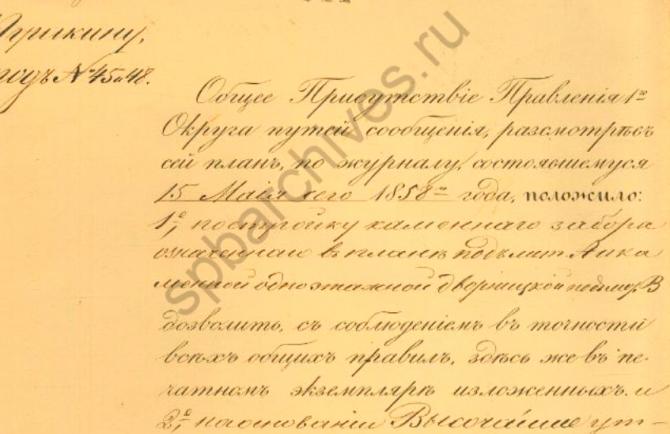 Пушкину,
подъ № 45 и 48.
Общее Присутствіе Правленія 1го
Округа путей сообщенія, разсмотрѣвъ
сей планъ, по журналу, состоявшемуся
15 Маія сего 1858го года, положило:
1е, постройку каменнаго забора
означеннаго в планѣ подъ лит. А и ка
менной одноэтажной дворницкой под лит. В
дозволить, съ соблюденіемъ въ точности
всѣхъ общихъ правилъ, здѣсь же въ пе-
чатномъ экземплярѣ изложенныхъ. и
2е, на основаніи Высочайше ут-
spbarchives.ru